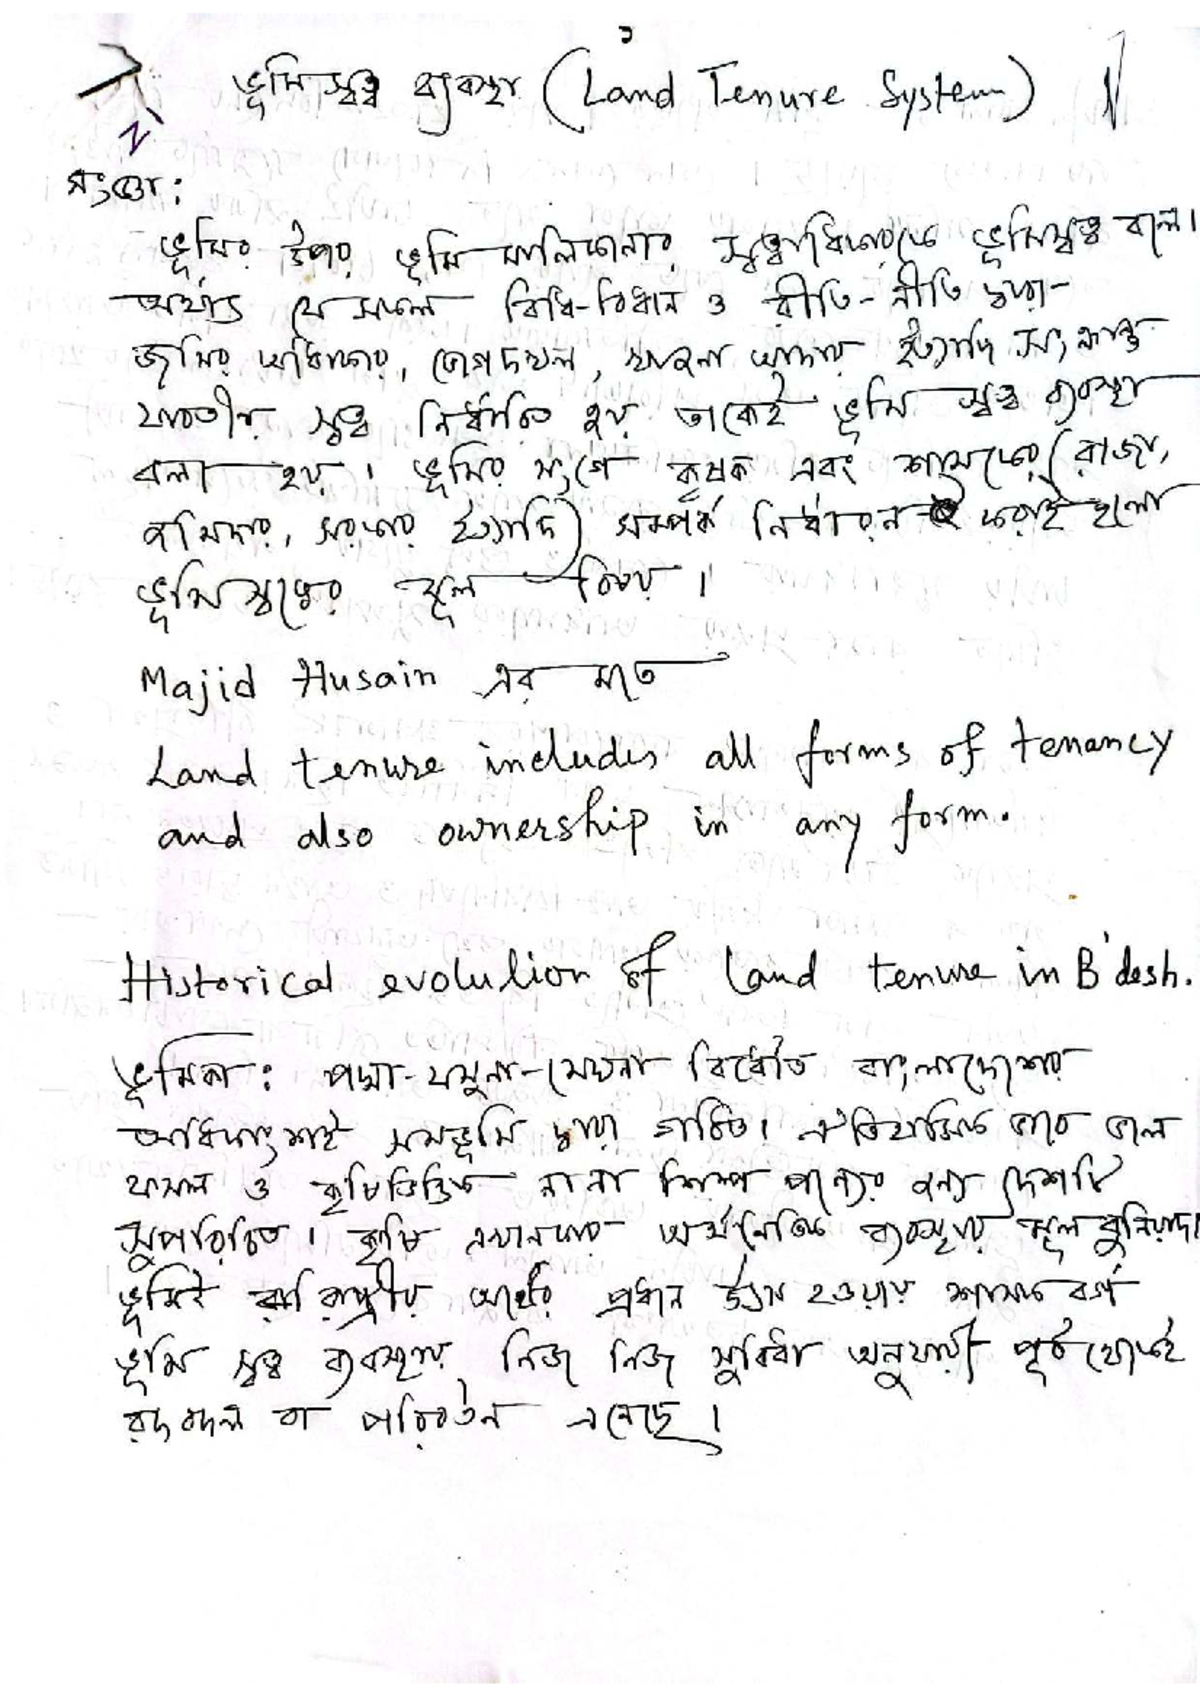 ১
ভূমিস্বত্ব ব্যবস্থা (Land Tenure System)
সংজ্ঞা:
ভূমির উপর ভূমি মালিকানার স্বত্বাধিকারকে ভূমিস্বত্ব বলে।
অর্থাৎ যে সকল বিধি-বিধান ও রীতি-নীতি দ্বারা
জমির অধিকার, ভোগদখল, খাজনা আদায় ইত্যাদি সংক্রান্ত
যাবতীয় স্বত্ব নির্ধারিত হয় তাকেই ভূমি স্বত্ব ব্যবস্থা
বলা হয়। ভূমির সংগে কৃষক এবং শাসকের (রাজা,
জমিদার, সরকার ইত্যাদি) সম্পর্ক নির্ধারন করাই হলো
ভূমিস্বত্বের মূল বিষয়।
Majid Husain এর মতে
Land tenure includes all forms of tenancy
and also ownership in any form.
Historical evolution of land tenure in B'desh.
ভূমিকা: পদ্মা-যমুনা-মেঘনা বিধৌত বাংলাদেশের
অধিকাংশই সমভূমি দ্বারা গঠিত। ঐতিহাসিক ভাবে ভাল
ফসল ও কৃষিভিত্তিক নানা শিল্প পণ্যের জন্য দেশটি
সুপরিচিত। কৃষি এখানকার অর্থনৈতিক ব্যবস্থার মূল বুনিয়াদ।
ভূমিই রাষ্ট্রীয় অর্থের প্রধান উৎস হওয়ায় শাসক বর্গ
ভূমি স্বত্ব ব্যবস্থায় নিজ নিজ সুবিধা অনুযায়ী পূর্ব থেকেই
রদবদল বা পরিবর্তন এনেছে।